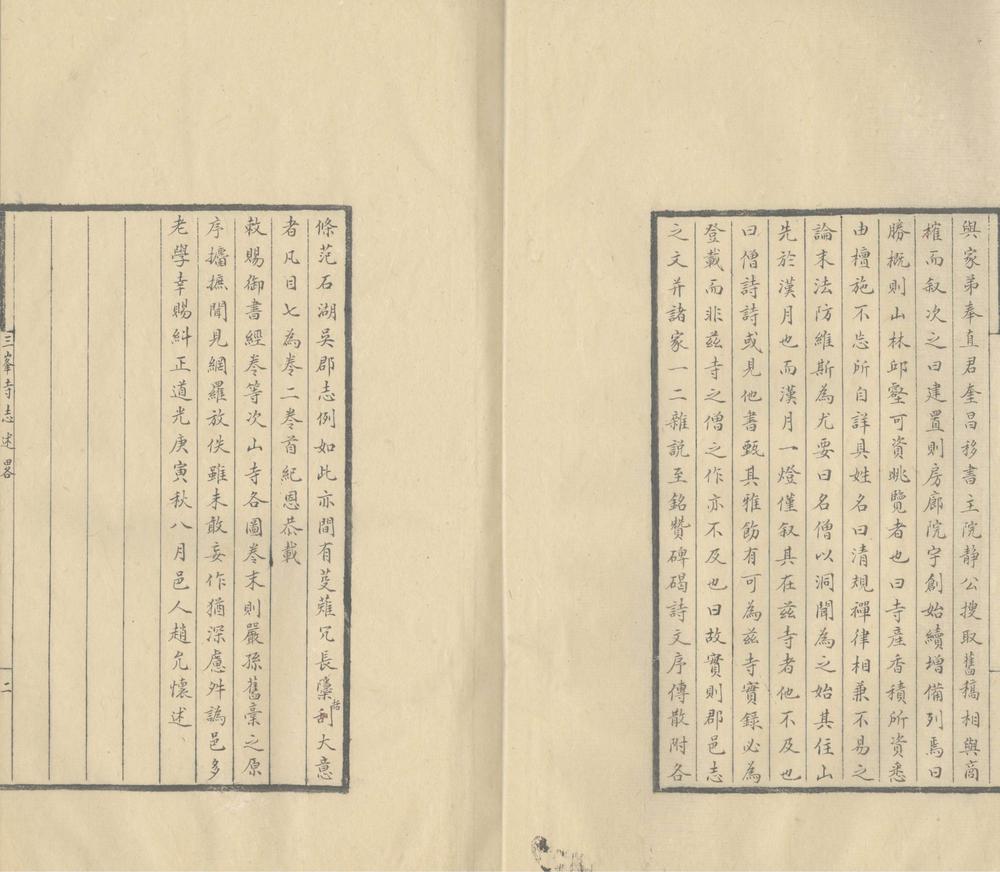 與家弟奉直君奎昌移書主院靜公搜取舊稿相與商
榷而叙次之曰建置則房廊院宇創始續增備列焉曰
勝概則山林邱壑可資眺覽者也曰寺產香積所資悉
由檀施不忘所自詳具姓名曰清規禪律相兼不易之
論末法防維斯為尤要曰名僧以洞聞為之始其住山
先於漢月也而漢月一燈僅叙其在茲寺者他不及也
曰僧詩詩或見他書甄其雅飭有可為茲寺實錄必為
登載而非茲寺之僧之作亦不及也曰故實則郡邑志
之文并諸家一二雜說至銘贊碑碣詩文序傳散附各
條范石湖吳郡志例如此亦間有芟薙冗長櫽刮括大意
者凡目七為卷二卷首紀恩恭載
敕賜御書經卷等次山寺各圖卷末則嚴孫舊稾之原
序攟摭聞見網羅放佚雖未敢妄作猶深慮舛譌邑多
老學幸賜糾正道光庚寅秋八月邑人趙允懷述
三峯寺志述畧
二